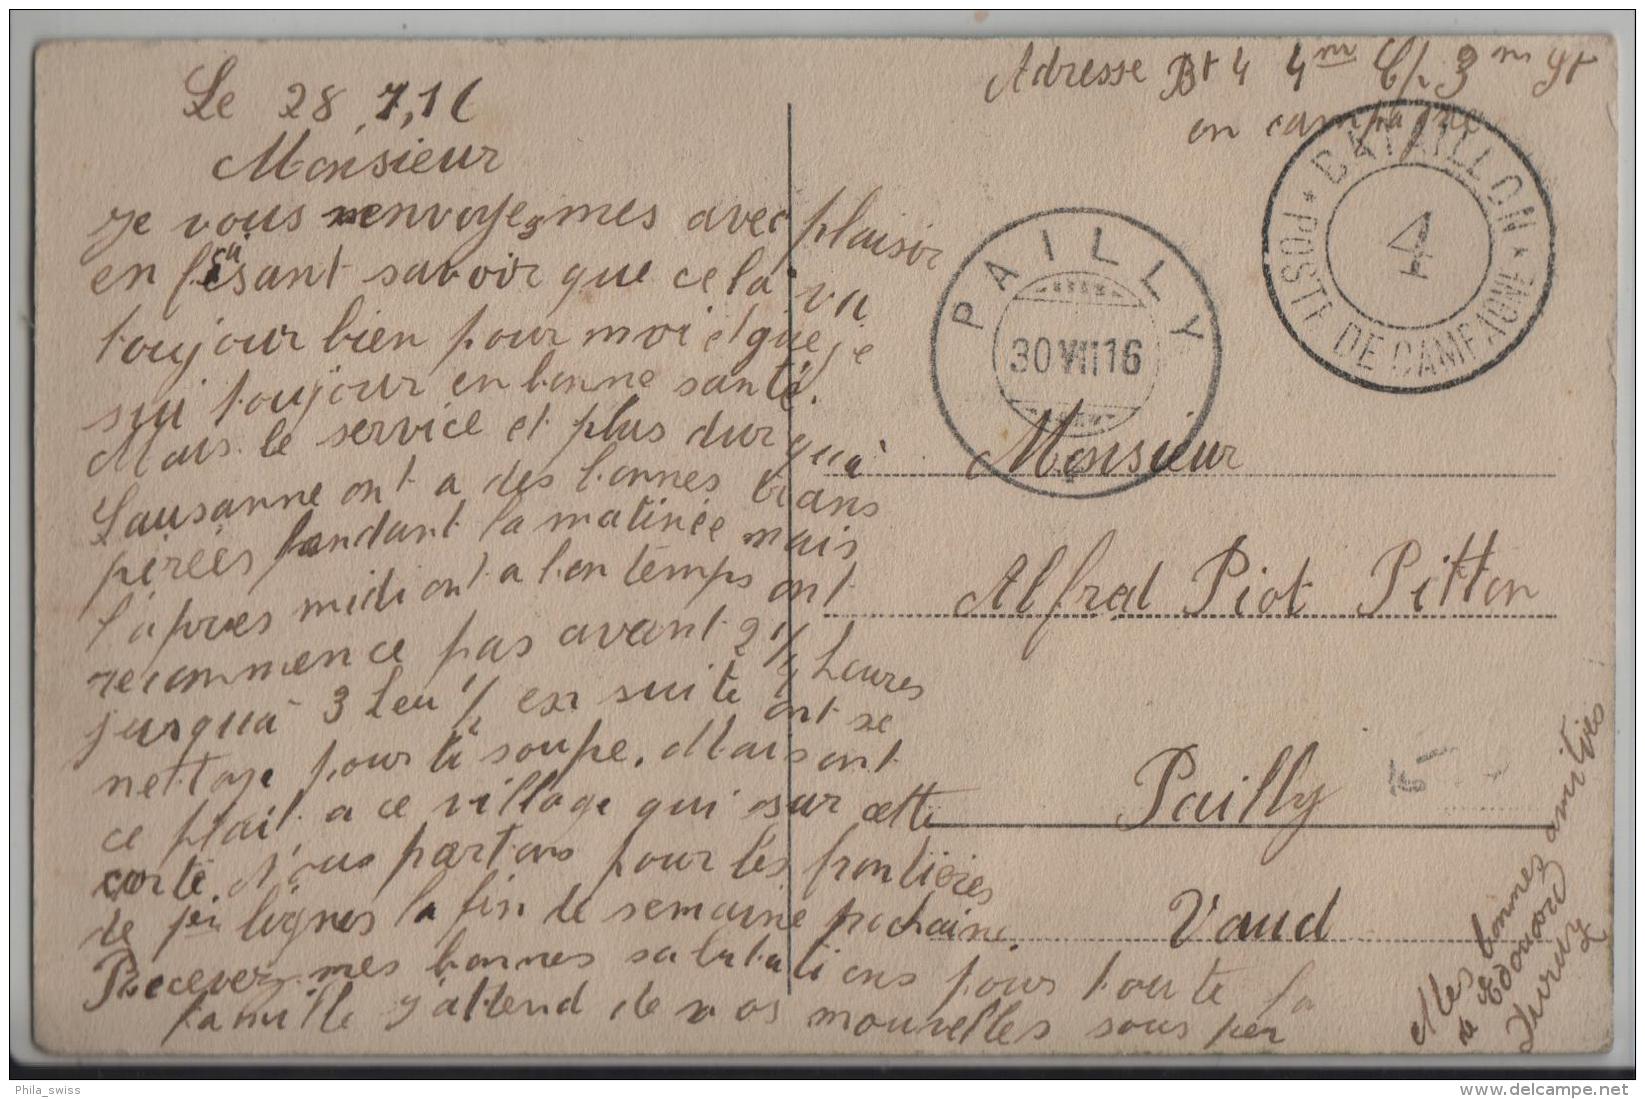 Le 28.7.16
Monsieur
je vous envoyez mes avec plaisir
en fesant savoir que cela va
toujour bien pour moi et que je
sui toujour en bonne santé.
Mais le service et plus dur qua
Lausanne ont a des bonnes trans
pirées pendant la matinée mais
l'apres midi ont a bon temps ont
recommence pas avant 2 1/2 heures
jusqua 3 heu 1/2 en suite ont se
nettoye pour la soupe. Mais ont
ce plait a ce village qui sur cette
carte. Nous partons pour les frontières
de lignes la fin de semaine prochaine.
Recever mes bonnes salutations pour toute la
famille j'attend de vos nouvelles sous peu
Mes bonnes amitiés
de Edouard
Duruz
Adresse Bt 4 4m C/. 3m gt
en campagne
BATAILLON
4
* POSTE DE CAMPAGNE *
PAILLY
30 VII 16
Monsieur
Alfred Piot Pitton
Pailly
Vaud
15-
Phila_swiss
www.delcampe.net